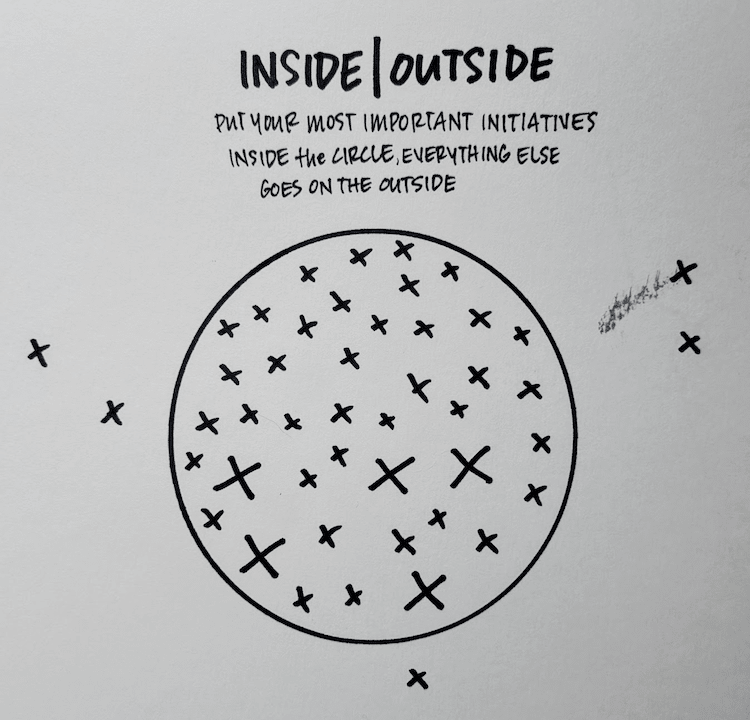 INSIDE|OUTSIDE
PUT YOUR MOST IMPORTANT INITIATIVES
INSIDE the CIRCLE, EVERYTHING ELSE
GOES ON THE OUTSIDE